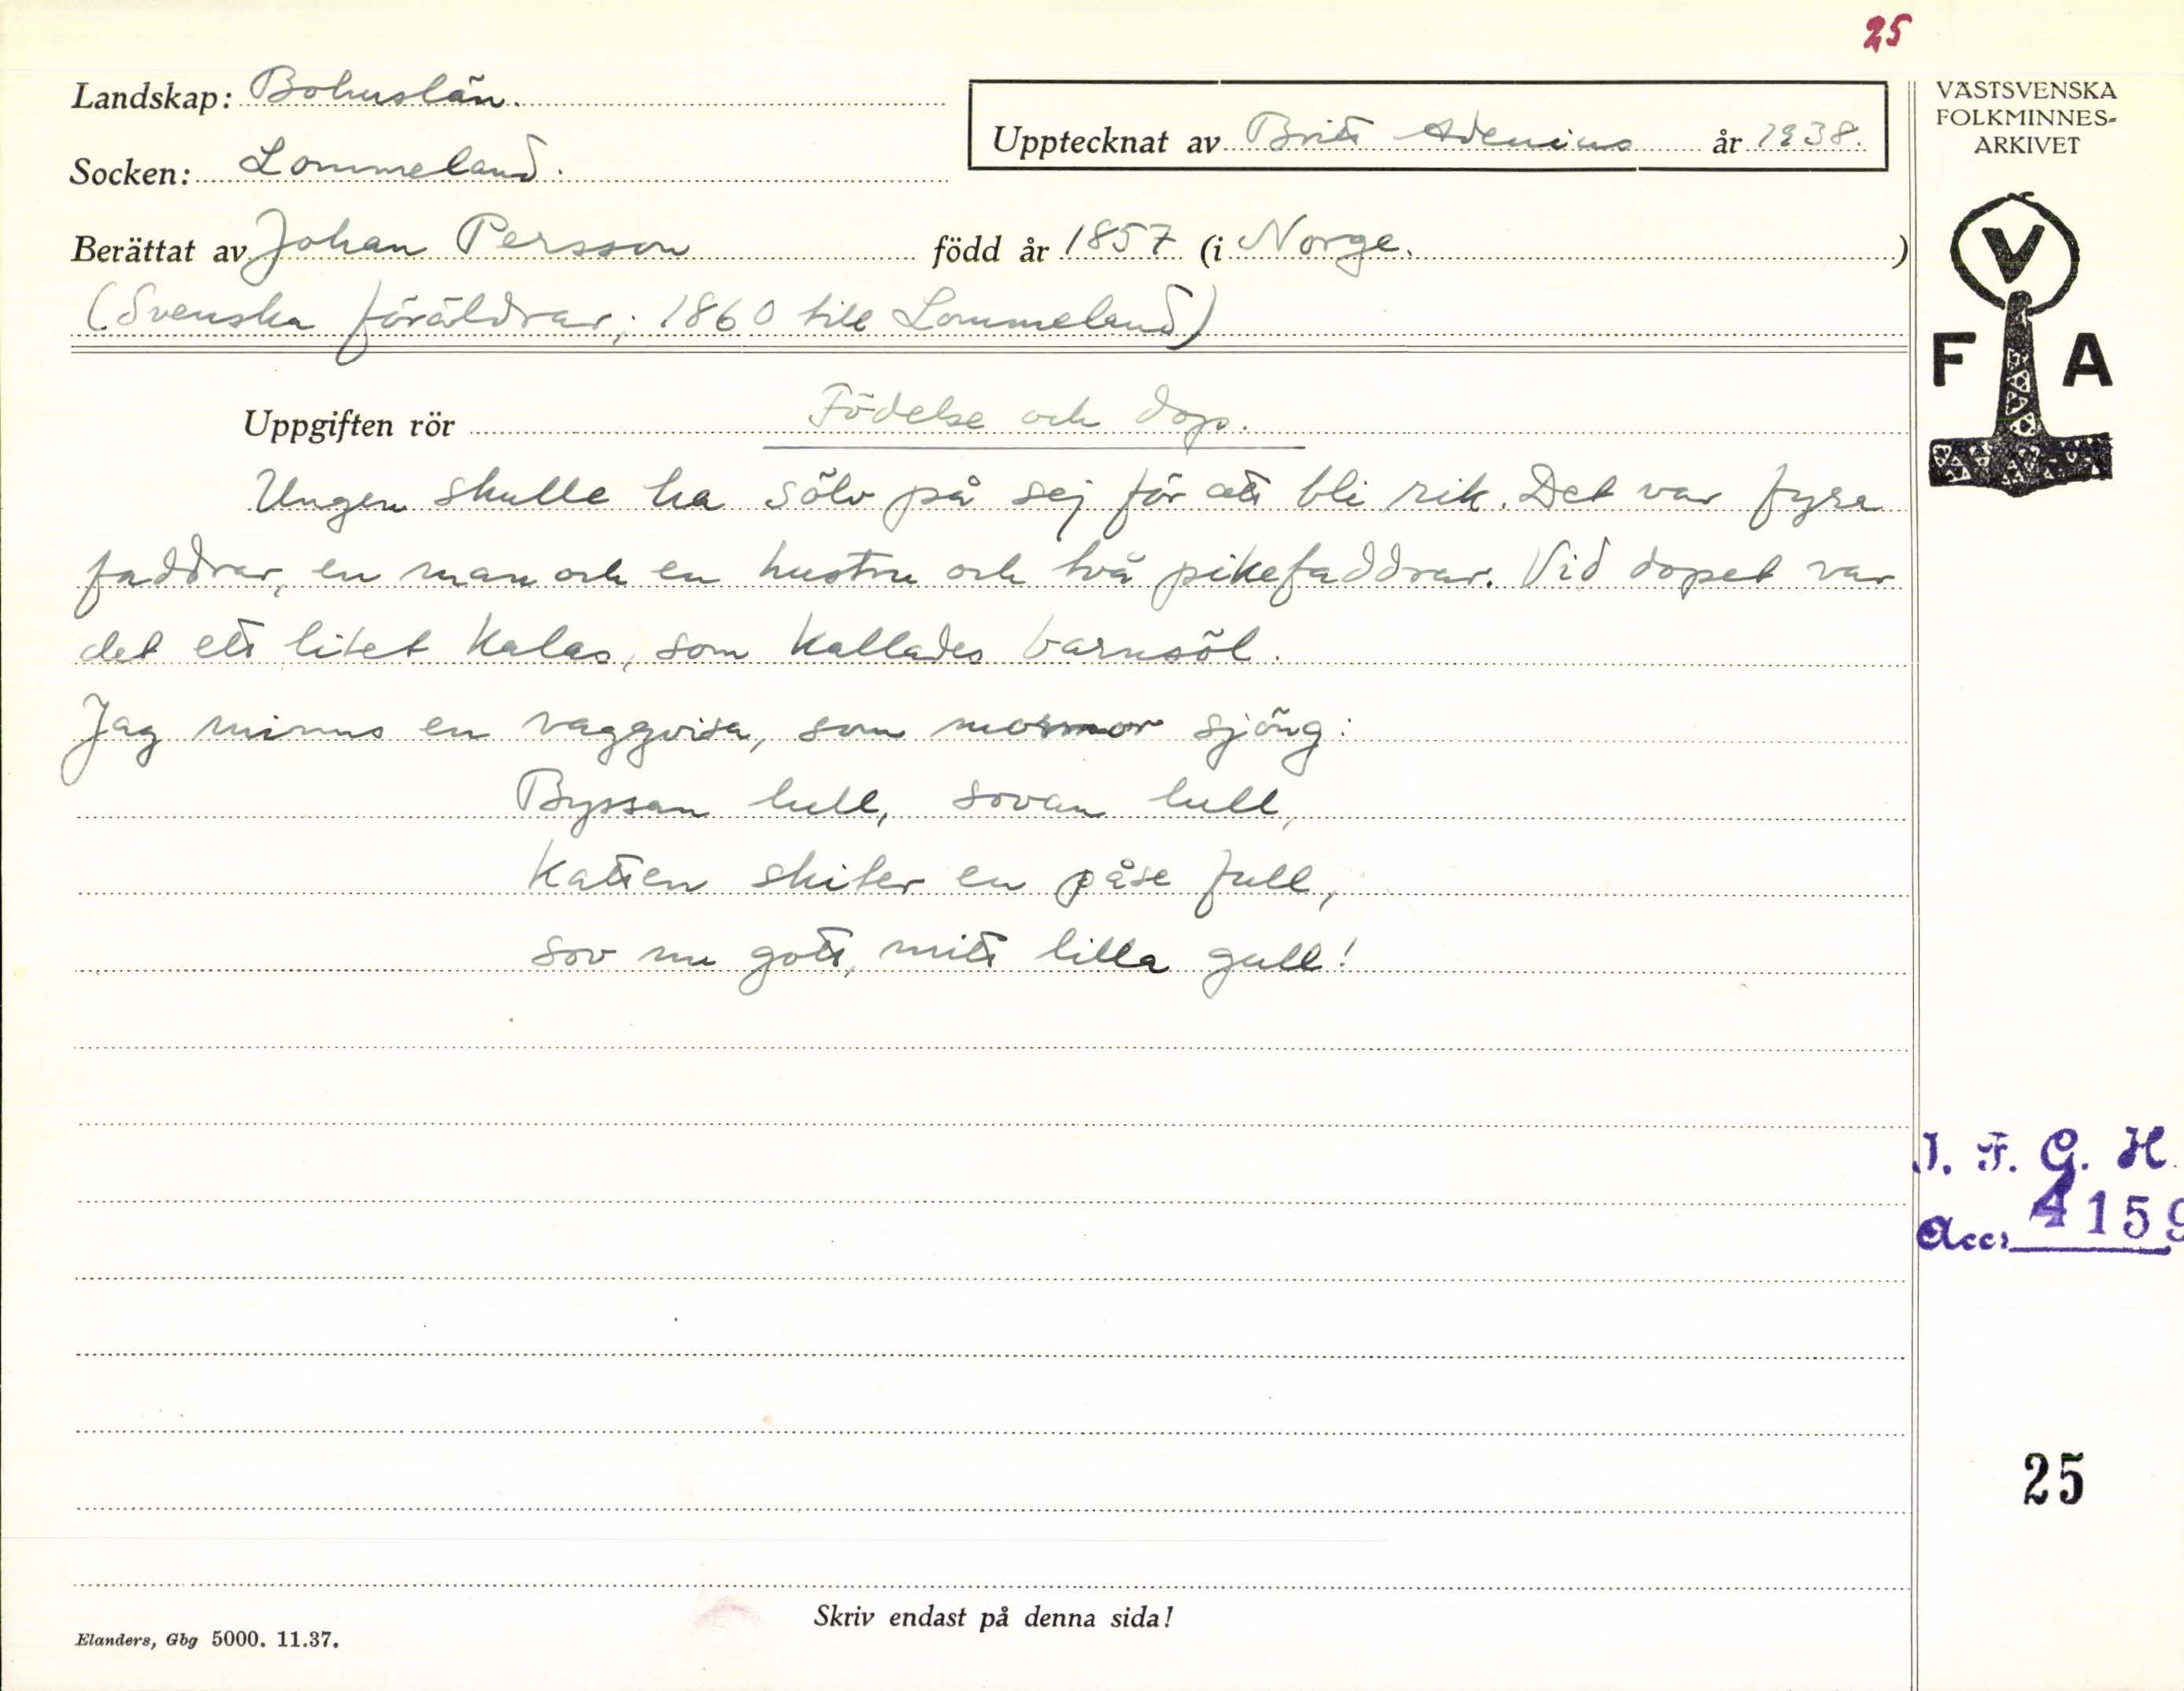 25
Landskap: Bohuslän.
Upptecknat av Britt Adenius år 1938.
Socken: Lommeland.
Berättat av Johan Persson född år 1857 (i Norge.)
(Svenska föräldrar; 1860 till Lommeland)
VÄSTSVENSKA
FOLKMINNES-
ARKIVET
V
F A
Uppgiften rör Födelse och dop.
Ungen skulle ha sölv på sej för att bli rik. Det var fyra
faddrar, en man och en hustru och två pikefaddrar. Vid dopet var
det ett litet kalas, som kallades barnsöl.
Jag minns en vaggvisa, som mormor sjöng:
Byssan lull, sovan lull,
Katten skiter en påse full,
sov nu gott, mitt lilla gull!
I. F. G. H.
Acc. 4159
25
Skriv endast på denna sida!
Elanders, Gbg 5000. 11.37.